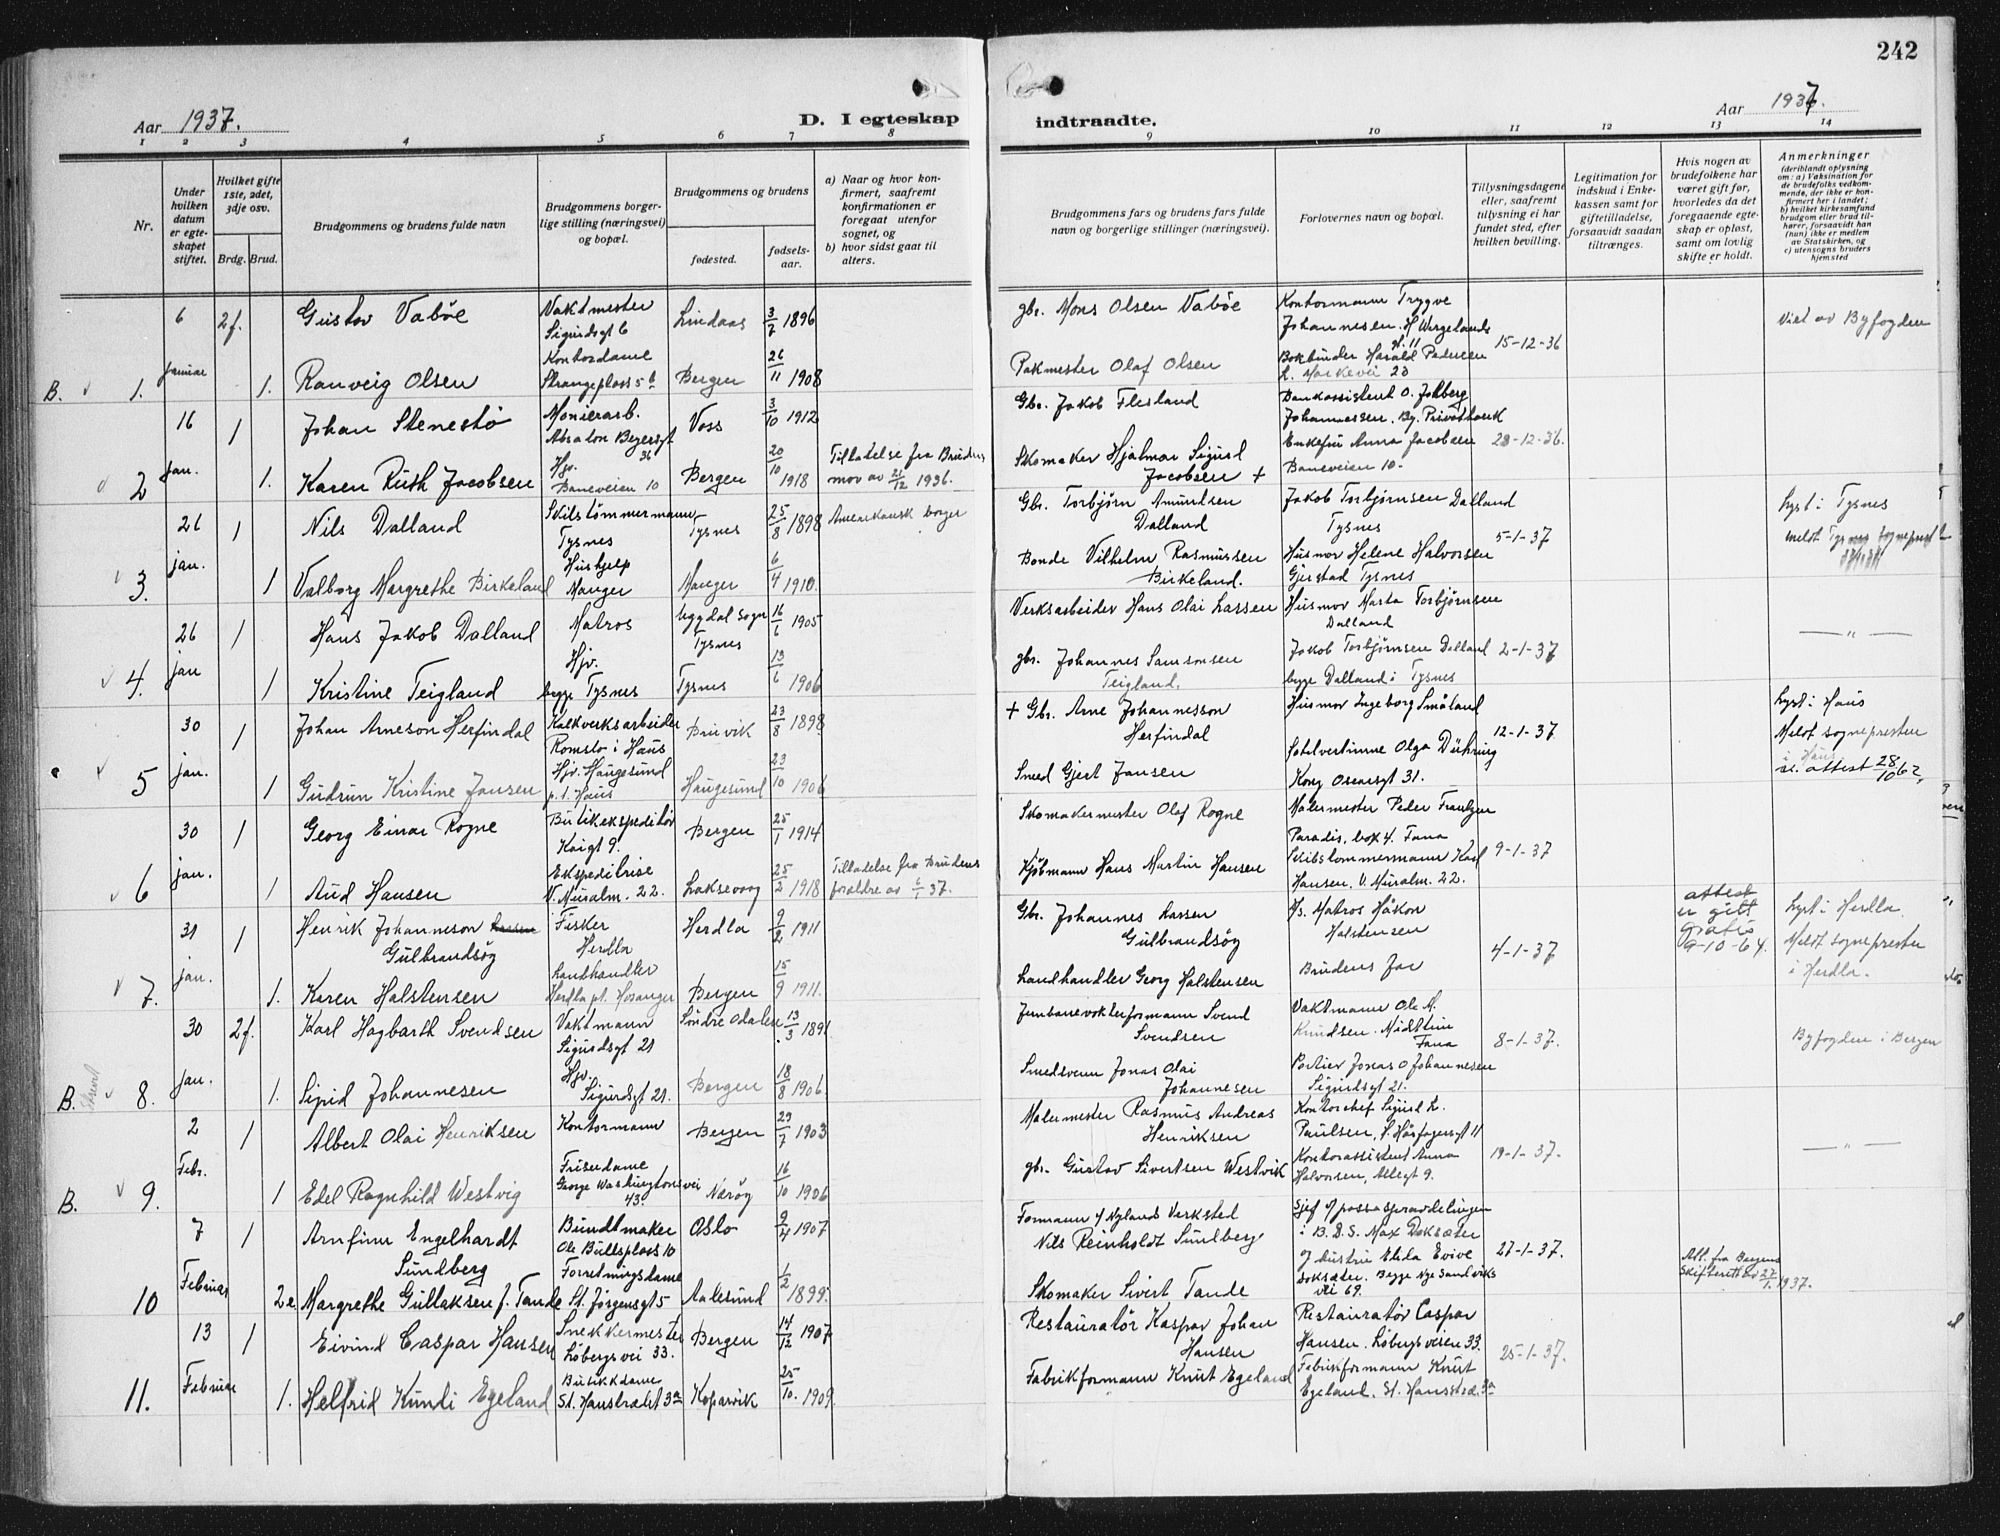 242
Aar 1937.
D. I egteskap
indtraadte.
Aar 1937.
1 2 3 4 5 6 7 8 9 10 11 12 13 14
Nr.
Under hvilken datum er egteskapet stiftet.
Hvilket gifte 1ste, 2det, 3dje osv.
Brdg. Brud.
Brudgommens og brudens fulde navn
Brudgommens borgerlige stilling (næringsvei) og bopæl.
Brudgommens og brudens
fødested.
fødselsaar.
a) Naar og hvor konfirmert, saafremt konfirmationen er foregaat utenfor sognet, og
b) hvor sidst gaat til alters.
Brudgommens fars og brudens fars fulde navn og borgerlige stillinger (næringsvei).
Forlovernes navn og bopæl.
Tillysningsdagene eller, saafremt tillysning ei har fundet sted, efter hvilken bevilling.
Legitimation for indskud i Enkekassen samt for giftetilladelse, forsaavidt saadan tiltrænges.
Hvis nogen av brudefolkene har været gift før, hvorledes da det foregaaende egteskap er opløst, samt om lovlig skifte er holdt.
Anmerkninger
(deriblandt oplysning om: a) Vaksination for de brudefolks vedkommende, der ikke er konfirmert her i landet; b) hvilket kirkesamfund brudgom eller brud tilhører, forsaavidt han (hun) ikke er medlem av Statskirken, og c) utensogns bruders hjemsted
B. 1. 6 Januar 2f. Gustav Vabøe Vaktmester Sigurdsgt 6 Lindaas 3/7 1896 gbr. Mons Olsen Vabøe Kontormann Trygve Johannesen. H Wergelands gt. 11 15-12-36 Viet av Byfogden
1. Ranveig Olsen Kontordame Strangeplass 5b Bergen 26/11 1908 Pakmester Olaf Olsen Bokbinder Harald Pedersen L. Markevei 23
2 16 Jan. 1 Johan Stenestø Monierarb. Absalon Beyersgt 36 Voss 3/10 1912 Gbr. Jakob Flesland Bankassistent O. Johannessen. By. Privatbank 28-12-36.
1. Karen Ruth Jacobsen Hjv. Baneveien 10 Bergen 20/10 1918 Tilladelse fra Brudens mor av 21/12 1936. Skomaker Hjalmar Sigurd Jacobsen + Enkefru Anna Jacobsen Baneveien 10.
3. 26 jan. 1 Nils Dalland Skibstømmermann Tysnes Tysnes 25/8 1898 Amerikansk borger Gbr. Torbjørn Amundsen Dalland Jakob Torbjørnsen Dalland Tysnes 5-1-37 Lyst i Tysnes
1 Valborg Margrethe Birkeland Hushjelp Manger Manger 6/4 1910. Bonde Vilhelm Rasmussen Birkeland. Husmor Helene Halvorsen Gjerstad Tysnes Meldt Tysnes sogneprest
4. 26 jan 1 Hans Jakob Dalland Matros Uggdal sogn Tysnes 16/6 1905 Verksarbeider Hans Olai Lassen Husmor Marta Torbjørnsen Dalland 2-1-37 — " —
1 Kristine Teigland Hjv. begge Tysnes Tysnes 13/6 1906 gbr. Johannes Samsonsen Teigland. Jakob Torbjørnsen Dalland begge Dalland i Tysnes
5 30 jan. 1 Johan Arneson Herfindal Kalkverksarbeider Romslo i Haus Bruvik 23/8 1898 + Gbr. Arne Johannesson Herfindal Husmor Ingeborg Småland 12-1-37 Lyst i Haus Meldt sognepresten i Haus
1 Gudrun Kristine Jansen Hjv. Haugesund p.t. Haus Haugesund 23/10 1906 Smed Gjert Jansen Sølvertinne Olga Dühring Kong Oscarsgt 31. attest 28/10 62.
6 30 jan. 1 Georg Einar Rogne Butikekspeditør Kaigt 9. Bergen 25/1 1914 Skomakermester Olaf Rogne Malermester Peder Frantzen Paradis, box 4. Fana 9-1-37
1 Aud Hansen Ekspeditrise V. Muralm. 22. Laksevaag 25/2 1918 Tilladelse fra Brudens foreldre av 6/1 37. Kjøbmann Hans Martin Hansen Skibstømmermann Karl Hansen. V. Muralm. 22.
7. 31 jan. 1 Henrik Johanneson Gulbrandsøy Fisker Herdla Herdla 9/2 1911 Gbr. Johannes Lassen Gulbrandsøy Hs. Matros Håkon Halstensen 4-1-37 attest er gitt gratis 9-10-64. Lyst i Herdla. Meldt sognepresten i Herdla.
1. Karen Halstensen Landhandler Herdla pt. Hosanger Bergen 15/9 1911. Landhandler Georg Halstensen Brudens far
B. 8. 30 Jan. 2f. Karl Hagbarth Svendsen Vaktmann Sigurdsgt 21 Søndre Odalen 13/3 1891 Jernbanevokterformann Svend Svendsen Vaktmann Ole M. Knudsen. Midttun Fana 8-1-37. Byfogden i Bergen
1. Sigrid Johannesen Hjv. Sigurdsgt 21. Bergen 18/8 1906. Smedsvenn Jonas Olai Johannesen Portier Jonas O Johannesen Sigurdsgt 21.
B. 9. 2 Febr. 1 Albert Olai Henriksen Kontormann Bergen 29/7 1903 Malermester Rasmus Andreas Henriksen Kontorchef Sigurd L. Paulsen, H. Hårfagersgt 11 19-1-37. — " —
1 Edel Ragnhild Westvig Friserdame George Washingtonsvei 43. Nærøy 16/10 1906 gbr. Gustav Sivertsen Westvik Kontorassistent Anna Halvorsen, Allegt 9.
10 7 Februar 1 Arnfinn Engelhardt Sundberg Bundtmaker Ole Bullsplass 10 Oslo 9/4 1907 Formann v/ Nylands Verksted Nils Reinholdt Sundberg Sjef v/ passasjeravdelingen i B.D.S. Max Doksæter 27-1-37. Att. fra Bergens Skifterett av 27/1. 1937.
2e. Margrethe Gullaksen f. Tande Forretningsdame St. Jørgensgt 5 Aalesund 1/2 1899. Skomaker Sivert Tande og hustru Elida Evive Doksæter. Begge Nye Sandviksvei 69.
11. 13 Februar 1 Eivind Caspar Hansen Snekkermester Løbergsvei 33. Bergen 14/12 1907 Restauratør Kaspar Johan Hansen Restauratør Caspar Hansen. Løbergsveien 33. 25-1-37.
1. Helfrid Kundi Egeland Butikkdame St. Hansstrædet 3a Kopervik 25/10. 1909. Fabrikformann Knut Egeland Fabrikformann Knut Egeland. St. Hansstræ. 3a